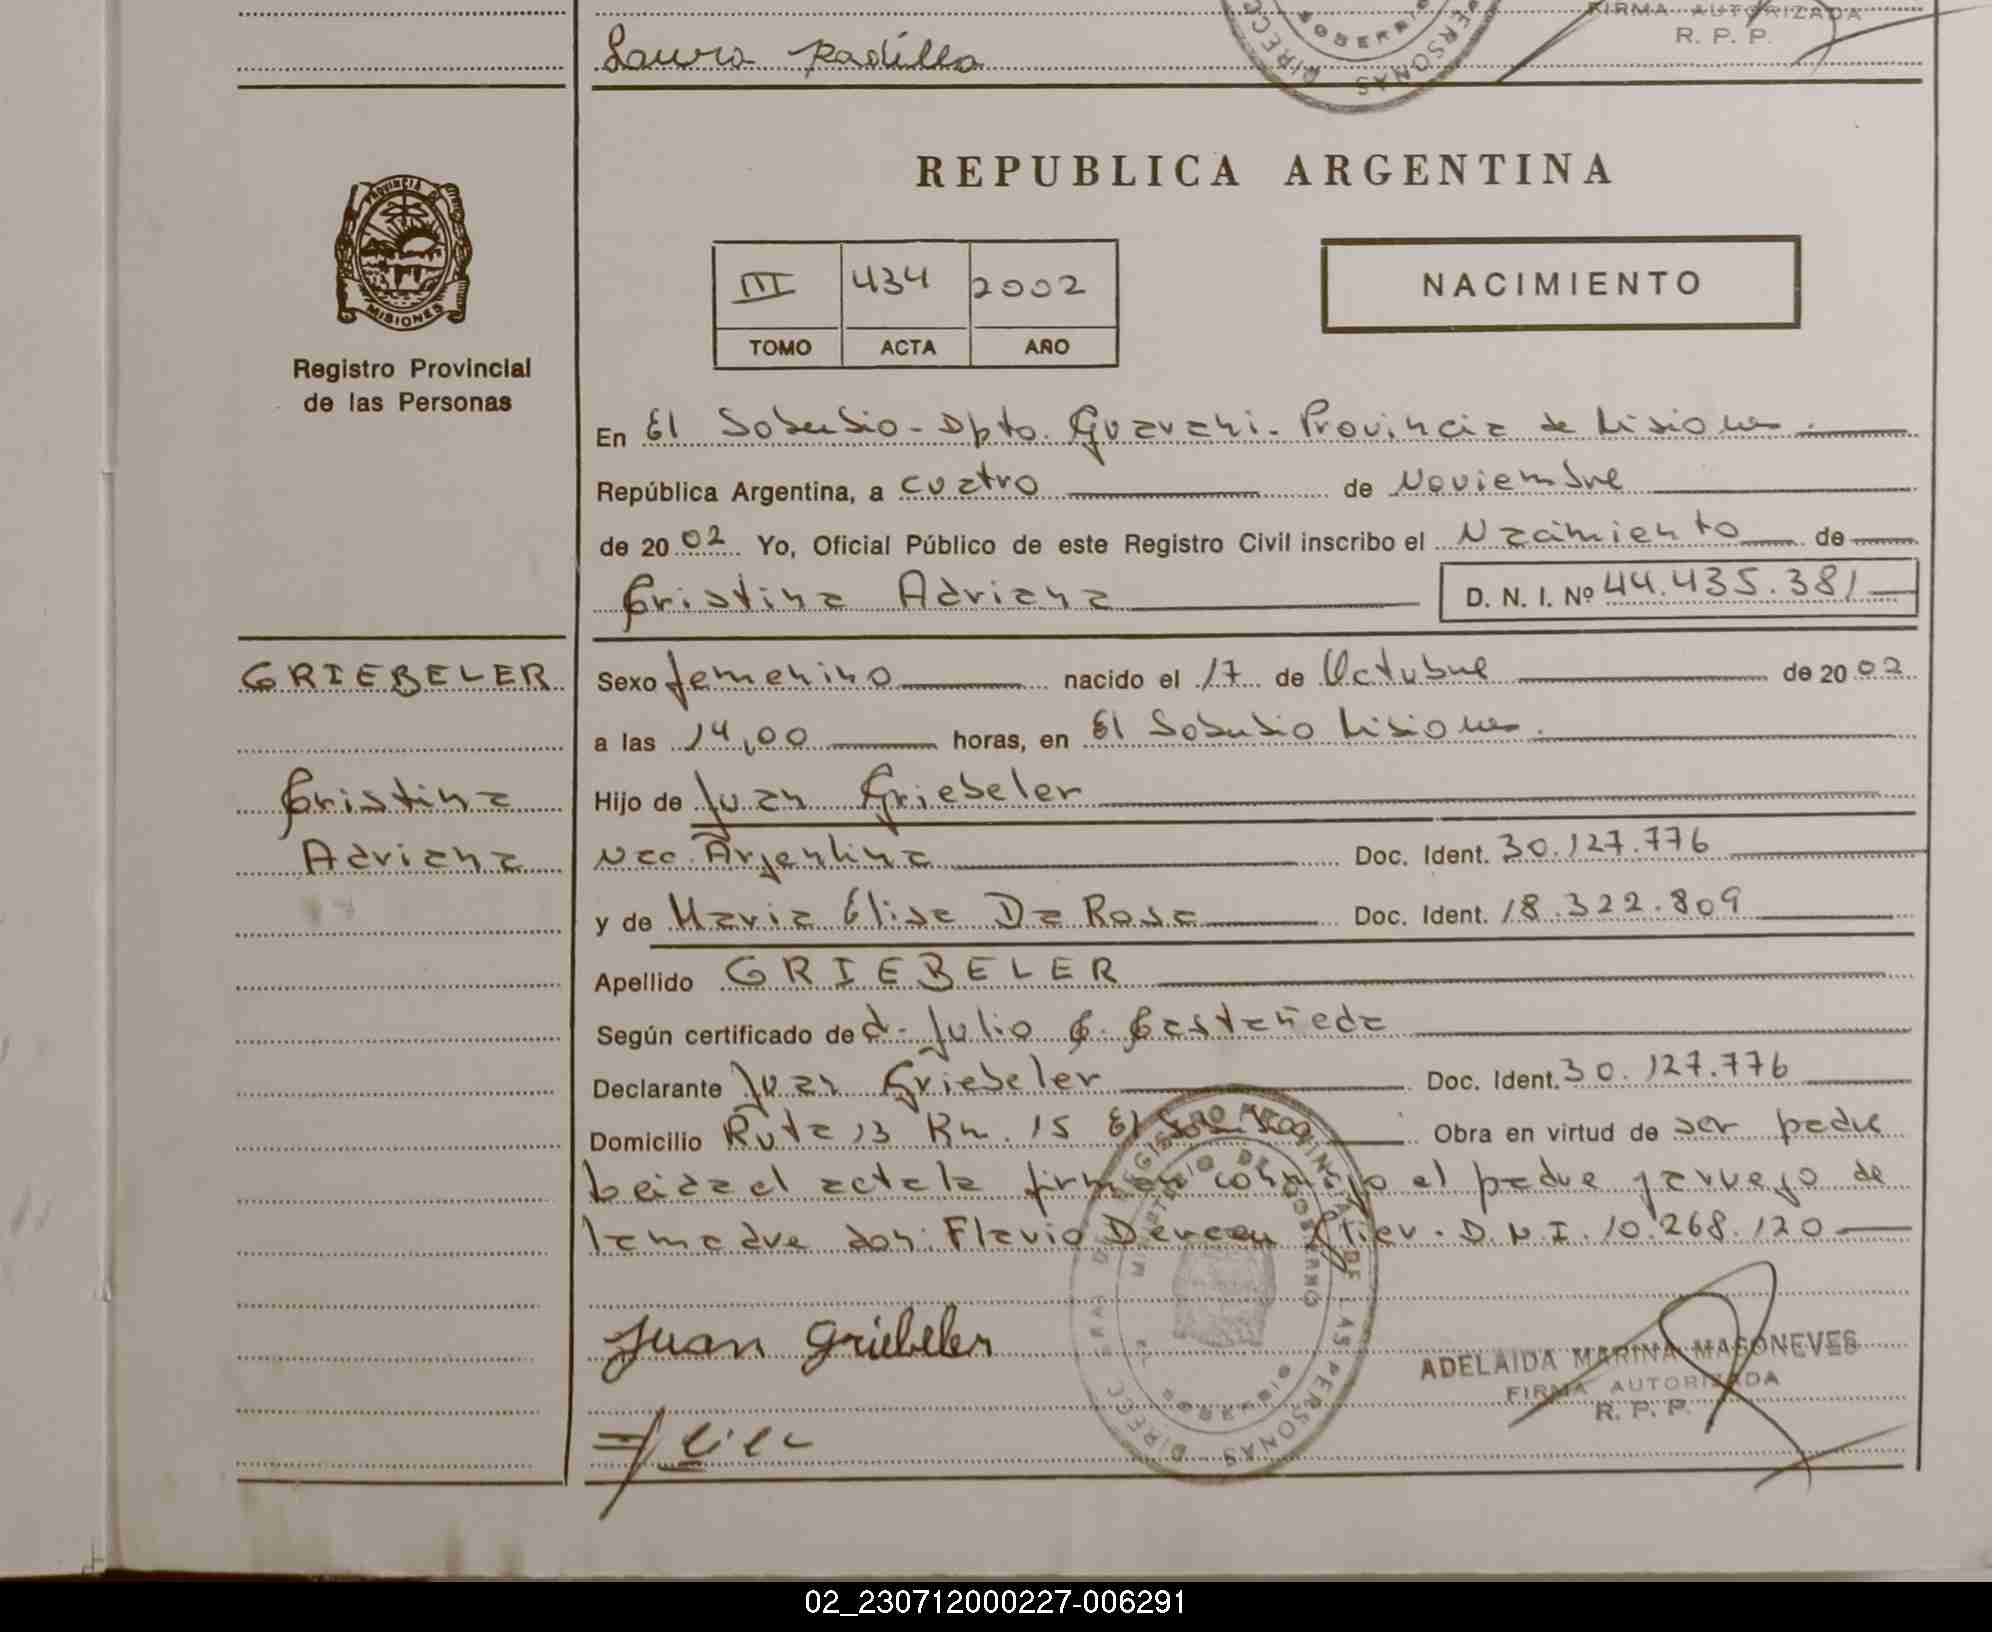 FIRMA AUTORIZADA
R. P. P.
Laura Padilla
REPUBLICA ARGENTINA
PROVINCIA DE
MISIONES
Registro Provincial
de las Personas
III 434 2002
TOMO ACTA AÑO
NACIMIENTO
En El Soberbio - Dpto. Guarani - Provincia de Misiones.
República Argentina, a cuatro de Noviembre
de 2002 Yo, Oficial Público de este Registro Civil inscribo el Nacimiento de
Cristina Adriana D. N. I. Nº 44.435.381
GRIEBELER
Cristina
Adriana
Sexo femenino nacido el 17 de Octubre de 2002
a las 14,00 horas, en El Soberbio Misiones.
Hijo de Juan Griebeler
Nac. Argentina Doc. Ident. 30.127.776
y de Maria Elisa Da Rosa Doc. Ident. 18.322.809
Apellido GRIEBELER
Según certificado de d. Julio C. Castañeda
Declarante Juan Griebeler Doc. Ident. 30.127.776
Domicilio Ruta 13 Km. 15 El Obra en virtud de ser padre
leida el acta la firman conmigo el padre y
la madre don: Flavio D.N.I. 10.268.120
Juan Griebeler
ADELAIDA MARINA MASONEVES
FIRMA AUTORIZADA
R. P. P.
02_230712000227-006291